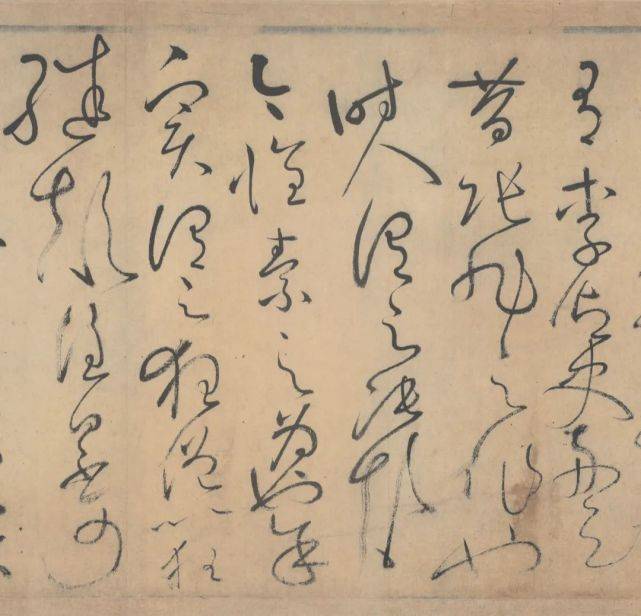 有李御史舟云
昔張旭之作也
時人謂之張顛
今懷素之為也余
實謂之狂僧以狂
繼顛誰曰不可